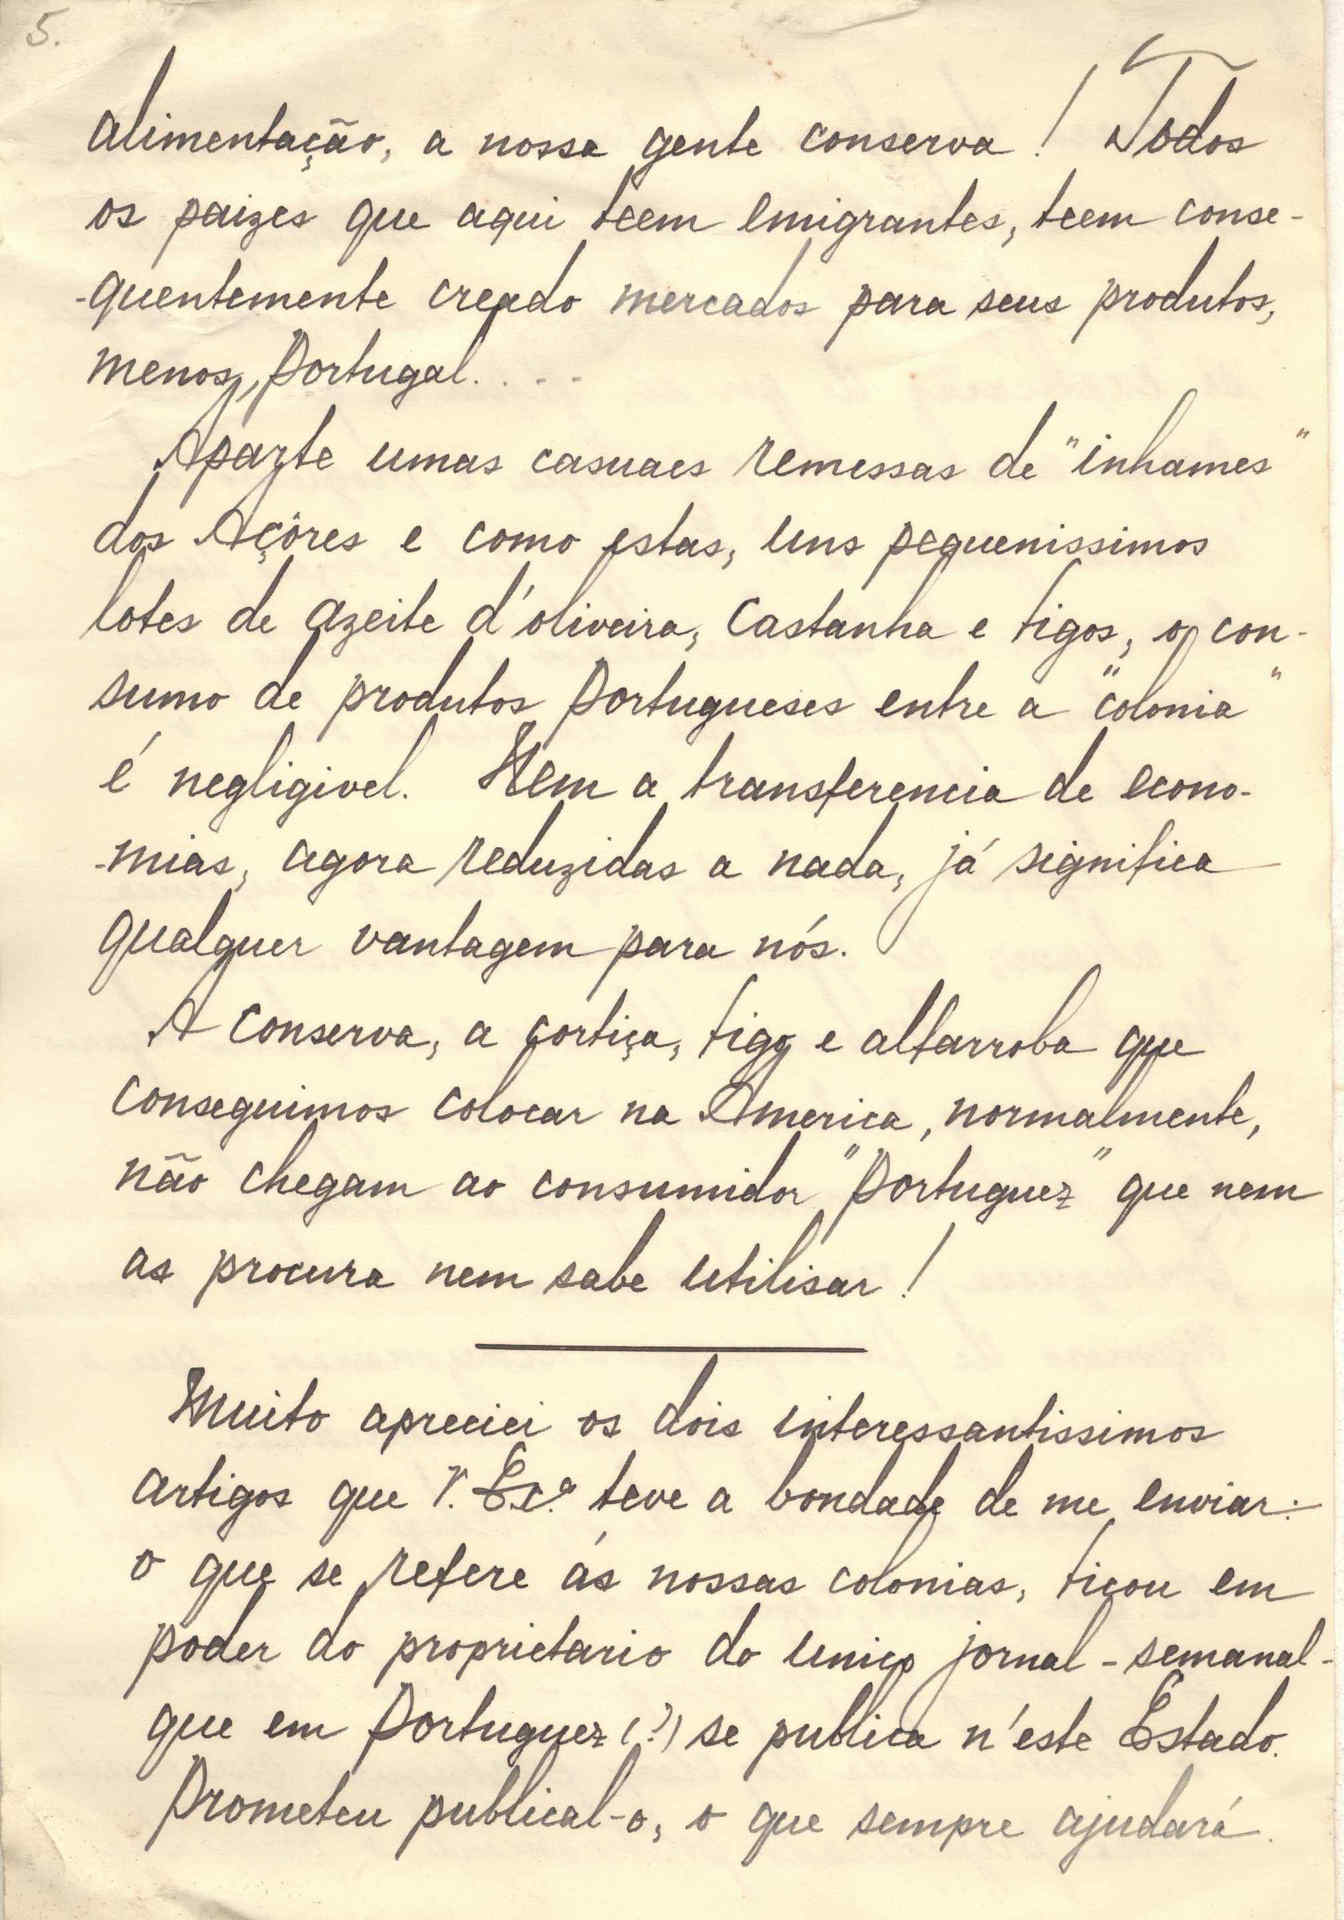 5.
alimentação, a nossa gente conserva! Todos
os paizes que aqui teem emigrantes, teem conse-
-quentemente creado mercados para seus produtos,
menos, Portugal. . . . .
Aparte umas casuaes remessas de "inhames"
dos Açôres e como estas, uns pequenissimos
lotes de azeite d'oliveira, castanha e figos, o con-
sumo de produtos Portugueses entre a "colonia"
é negligivel. Nem a transferencia de econo-
-mias, agora reduzidas a nada, já significa
qualquer vantagem para nós.
A conserva, a cortiça, figo e alfarroba que
conseguimos colocar na America, normalmente,
não chegam ao consumidor "Portuguez" que nem
as procura nem sabe utilisar!
Muito apreciei os dois interessantissimos
artigos que V. Exª. teve a bondade de me enviar:
o que se refere ás nossas colonias, ficou em
poder do proprietario do unico jornal - semanal -
que em Portuguez (?) se publica n'este Estado.
Prometeu publical-o, o que sempre ajudará.